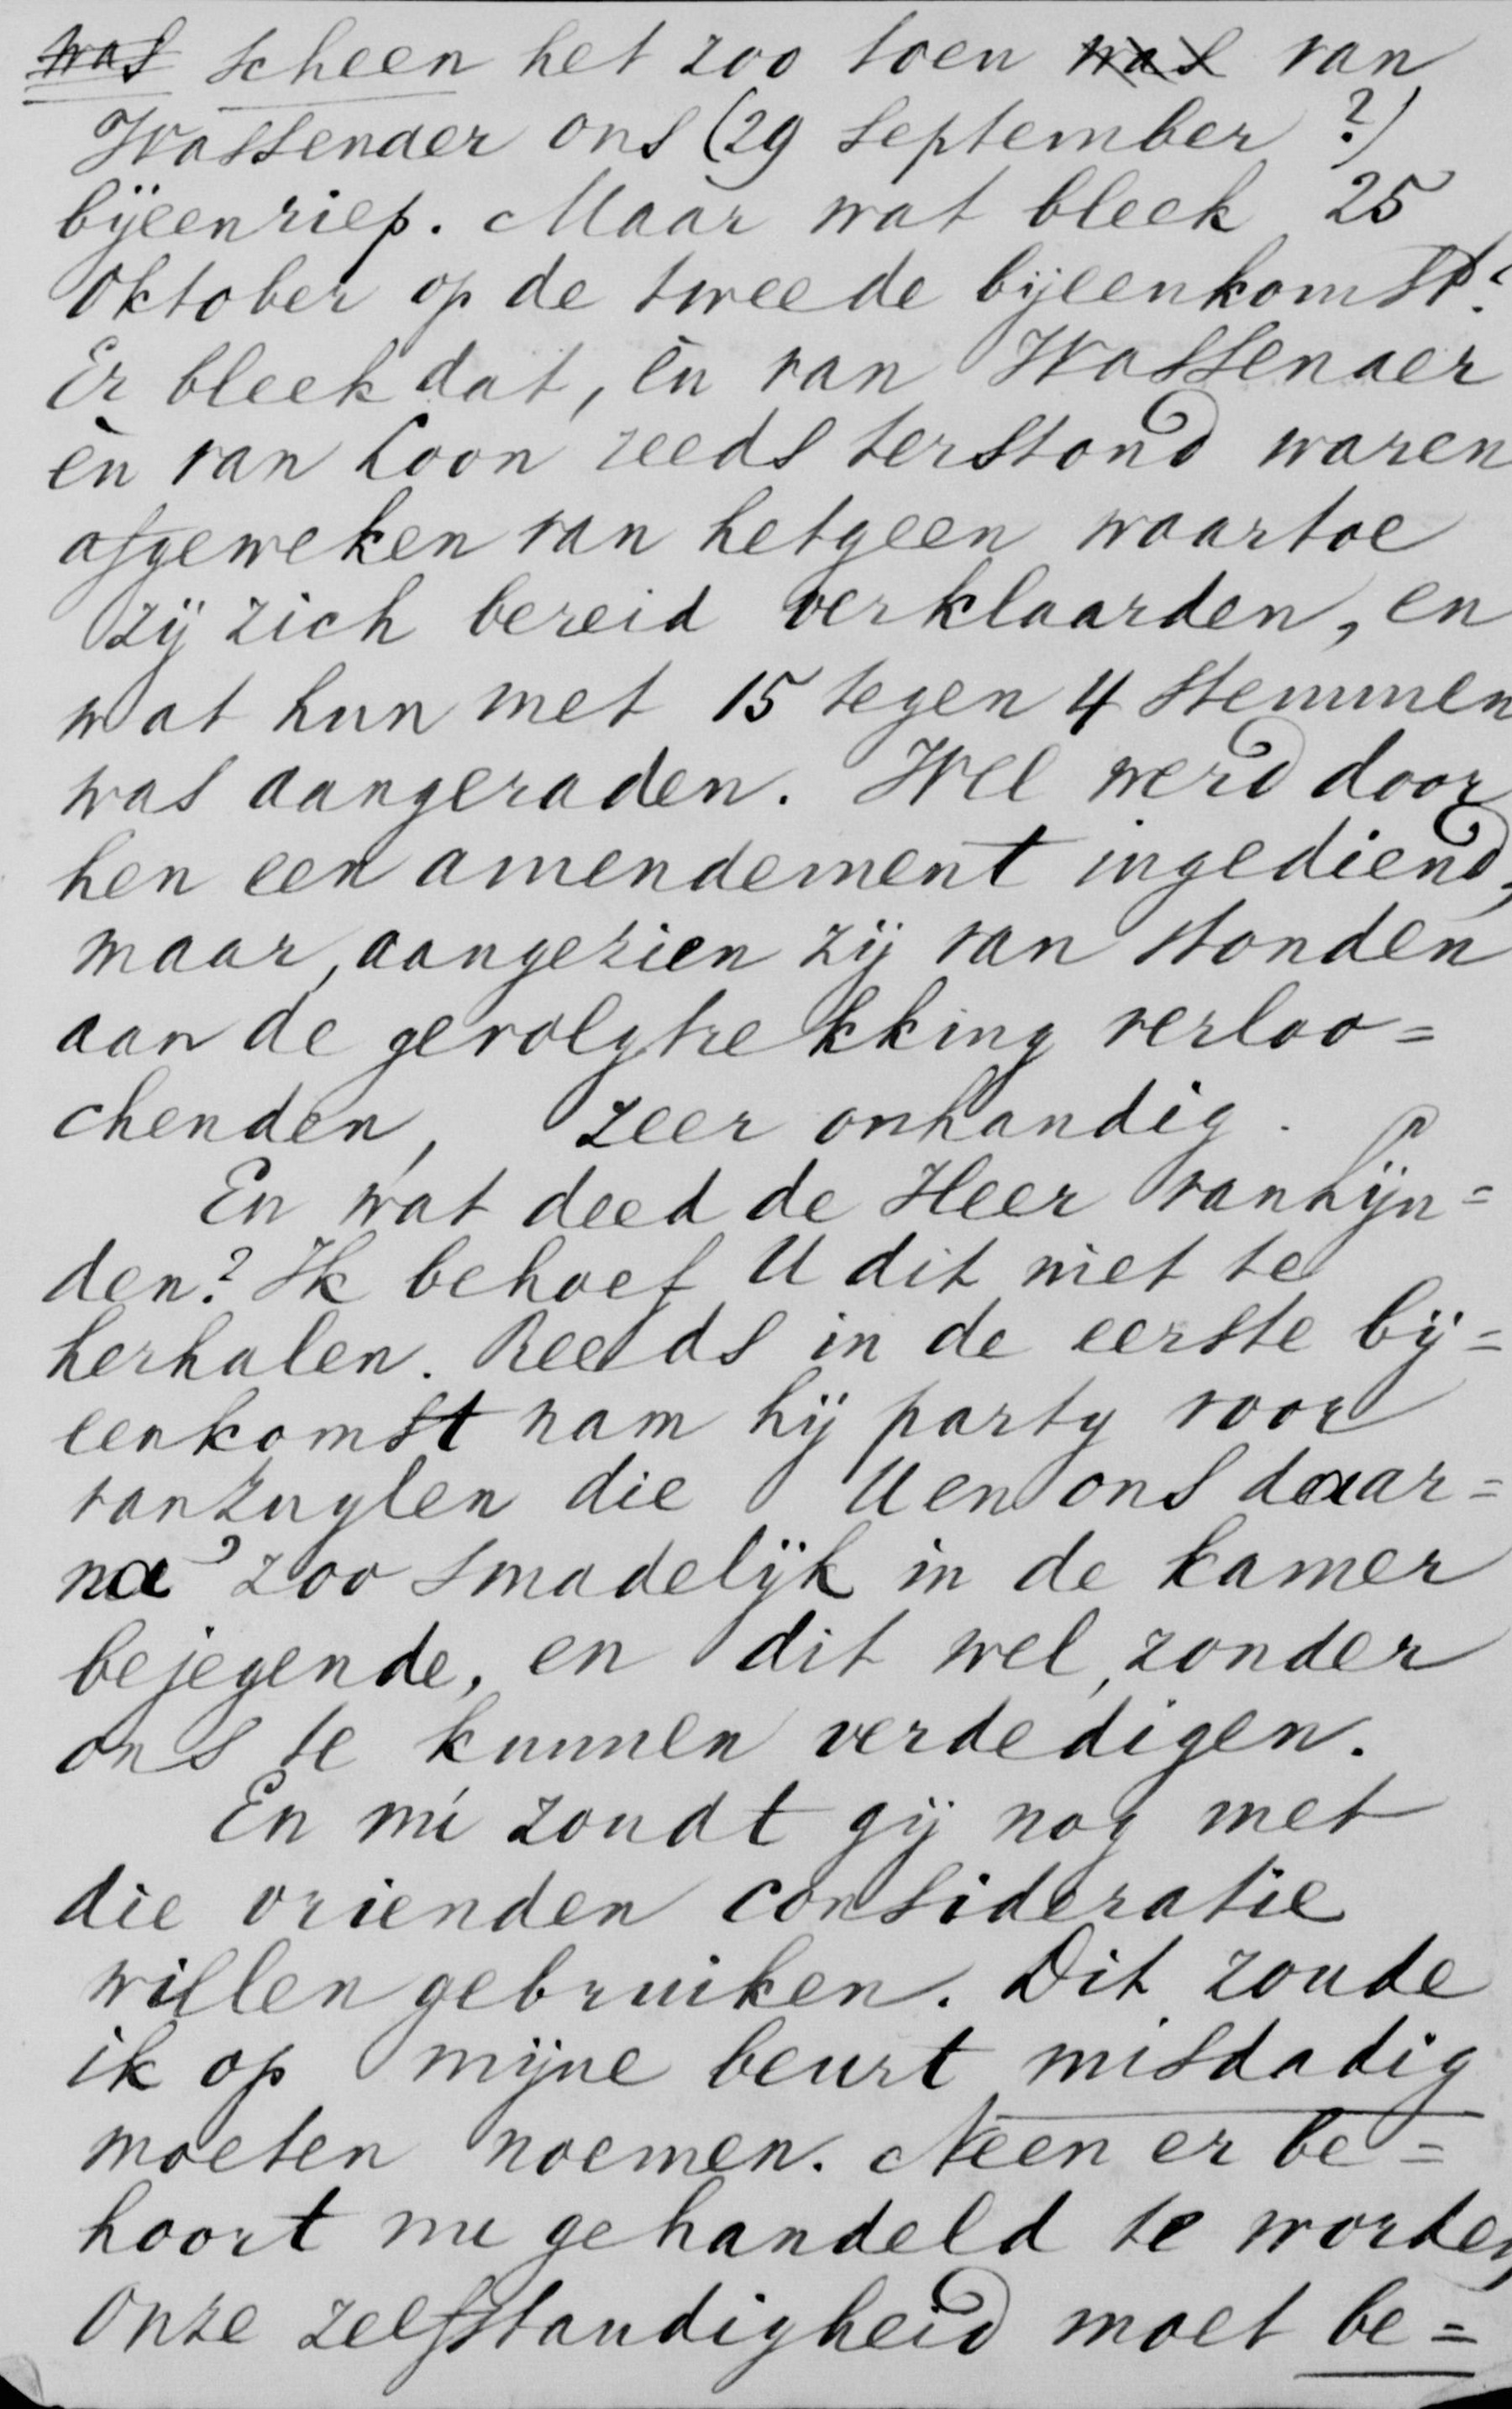 was scheen het zoo toen was van
Wassenaer ons (29 September ?)
bijeenriep. Maar wat bleek 25
Oktober op de tweede bijeenkomst?
Er bleek dat, èn van Wassenaer
èn van Loon reeds terstond waren
afgeweken van hetgeen waartoe
zij zich bereid verklaarden, en
wat hun met 15 tegen 4 stemmen
was aangeraden. Wel werd door
hen een amendement ingediend,
maar, aangezien zij van stonden
aan de gevolgtrekking verloo=
chenden, zeer onhandig.
En wat deed de Heer van Lijn=
den? Ik behoef U dit niet te
herhalen. Reeds in de eerste bij=
eenkomst nam hij party voor
van Zuylen die U en ons daar=
na zoo smadelijk in de kamer
bejegende, en dit wel, zonder
ons te kunnen verdedigen.
En nú zoudt gij nog met
die vrienden consideratie
willen gebruiken. Dit zoude
ik op mijne beurt misdadig
moeten noemen. Neen er be=
hoort nu gehandeld te worden,
Onze zelfstandigheid moet be=